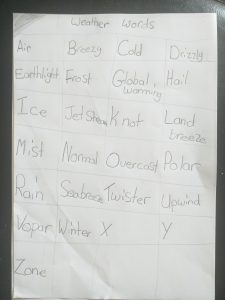 Weather words
Air Breezy Cold Drizzly
Earthlight Frost Global warming Hail
Ice Jet Stream Knot Land breeze
Mist Normal Overcast Polar
Rain Seabreeze Twister Upwind
Vapor Winter X Y
Zone